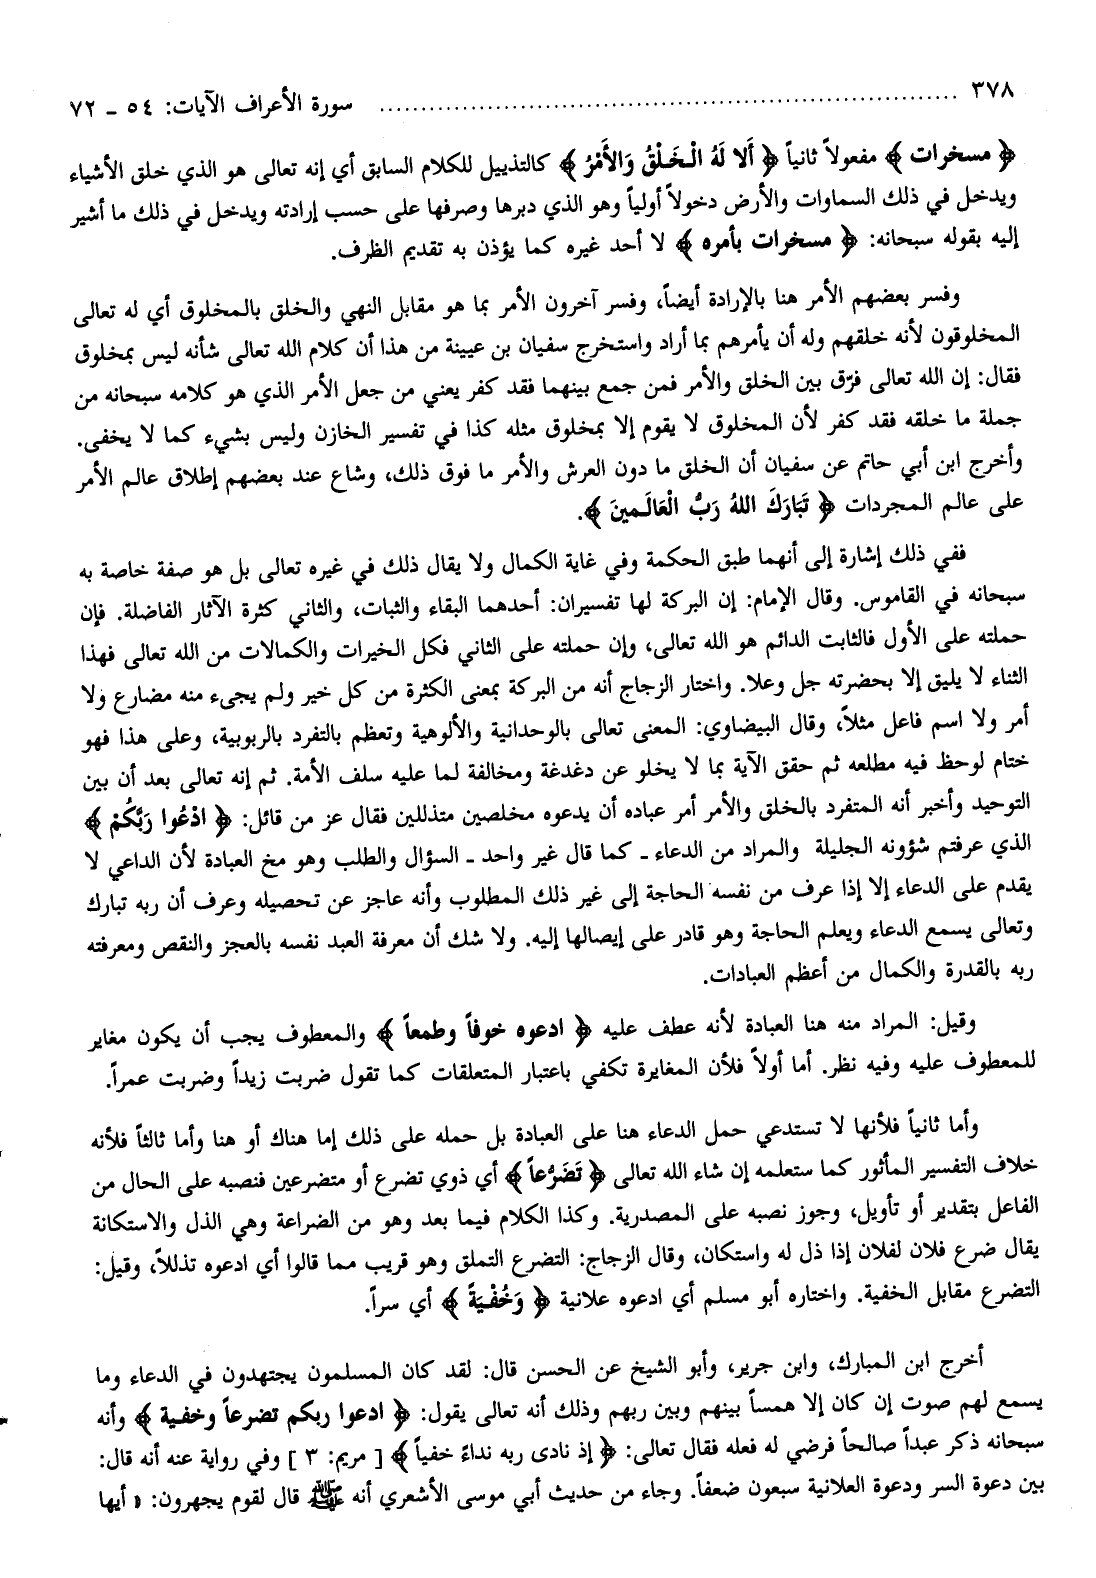 ٣٧٨ ........................................................................ سورة الأعراف الآيات: ٥٤ ـ ٧٢
﴿ مسخرات ﴾ مفعولاً ثانياً ﴿ أَلا لَهُ الْخَلْقُ وَالأَمْرُ ﴾ كالتذييل للكلام السابق أي إنه تعالى هو الذي خلق الأشياء
ويدخل في ذلك السماوات والأرض دخولاً أولياً وهو الذي دبرها وصرفها على حسب إرادته ويدخل في ذلك ما أشير
إليه بقوله سبحانه: ﴿ مسخرات بأمره ﴾ لا أحد غيره كما يؤذن به تقديم الظرف.
وفسر بعضهم الأمر هنا بالإرادة أيضاً، وفسر آخرون الأمر بما هو مقابل النهي والخلق بالمخلوق أي له تعالى
المخلوقون لأنه خلقهم وله أن يأمرهم بما أراد واستخرج سفيان بن عيينة من هذا أن كلام الله تعالى شأنه ليس بمخلوق
فقال: إن الله تعالى فرّق بين الخلق والأمر فمن جمع بينهما فقد كفر يعني من جعل الأمر الذي هو كلامه سبحانه من
جملة ما خلقه فقد كفر لأن المخلوق لا يقوم إلا بمخلوق مثله كذا في تفسير الخازن وليس بشيء كما لا يخفى.
وأخرج ابن أبي حاتم عن سفيان أن الخلق ما دون العرش والأمر ما فوق ذلك، وشاع عند بعضهم إطلاق عالم الأمر
على عالم المجردات ﴿ تَبَارَكَ اللهُ رَبُّ الْعَالَمينَ ﴾.
ففي ذلك إشارة إلى أنهما طبق الحكمة وفي غاية الكمال ولا يقال ذلك في غيره تعالى بل هو صفة خاصة به
سبحانه في القاموس. وقال الإمام: إن البركة لها تفسيران: أحدهما البقاء والثبات، والثاني كثرة الآثار الفاضلة. فإن
حملته على الأول فالثابت الدائم هو الله تعالى، وإن حملته على الثاني فكل الخيرات والكمالات من الله تعالى فهذا
الثناء لا يليق إلا بحضرته جل وعلا. واختار الزجاج أنه من البركة بمعنى الكثرة من كل خير ولم يجىء منه مضارع ولا
أمر ولا اسم فاعل مثلاً، وقال البيضاوي: المعنى تعالى بالوحدانية والألوهية وتعظم بالتفرد بالربوبية، وعلى هذا فهو
ختام لوحظ فيه مطلعه ثم حقق الآية بما لا يخلو عن دغدغة ومخالفة لما عليه سلف الأمة. ثم إنه تعالى بعد أن بين
التوحيد وأخبر أنه المتفرد بالخلق والأمر أمر عباده أن يدعوه مخلصين متذللين فقال عز من قائل: ﴿ ادْعُوا رَبَّكُمْ ﴾
الذي عرفتم شؤونه الجليلة والمراد من الدعاء ـ كما قال غير واحد ـ السؤال والطلب وهو مخ العبادة لأن الداعي لا
يقدم على الدعاء إلا إذا عرف من نفسه الحاجة إلى غير ذلك المطلوب وأنه عاجز عن تحصيله وعرف أن ربه تبارك
وتعالى يسمع الدعاء ويعلم الحاجة وهو قادر على إيصالها إليه. ولا شك أن معرفة العبد نفسه بالعجز والنقص ومعرفته
ربه بالقدرة والكمال من أعظم العبادات.
وقيل: المراد منه هنا العبادة لأنه عطف عليه ﴿ ادعوه خوفاً وطمعاً ﴾ والمعطوف يجب أن يكون مغاير
للمعطوف عليه وفيه نظر. أما أولاً فلأن المغايرة تكفي باعتبار المتعلقات كما تقول ضربت زيداً وضربت عمراً.
وأما ثانياً فلأنها لا تستدعي حمل الدعاء هنا على العبادة بل حمله على ذلك إما هناك أو هنا وأما ثالثاً فلأنه
خلاف التفسير المأثور كما ستعلمه إن شاء الله تعالى ﴿ تَضَرُّعاً ﴾ أي ذوي تضرع أو متضرعين فنصبه على الحال من
الفاعل بتقدير أو تأويل، وجوز نصبه على المصدرية. وكذا الكلام فيما بعد وهو من الضراعة وهي الذل والاستكانة
يقال ضرع فلان لفلان إذا ذل له واستكان، وقال الزجاج: التضرع التملق وهو قريب مما قالوا أي ادعوه تذللاً، وقيل:
التضرع مقابل الخفية. واختاره أبو مسلم أي ادعوه علانية ﴿ وَخُفْيَةً ﴾ أي سراً.
أخرج ابن المبارك، وابن جرير، وأبو الشيخ عن الحسن قال: لقد كان المسلمون يجتهدون في الدعاء وما
يسمع لهم صوت إن كان إلا همساً بينهم وبين ربهم وذلك أنه تعالى يقول: ﴿ ادعوا ربكم تضرعاً وخفية ﴾ وأنه
سبحانه ذكر عبداً صالحاً فرضي له فعله فقال تعالى: ﴿ إذ نادى ربه نداءً خفياً ﴾ [ مريم: ٣ ] وفي رواية عنه أنه قال:
بين دعوة السر ودعوة العلانية سبعون ضعفاً. وجاء من حديث أبي موسى الأشعري أنه ﷺ قال لقوم يجهرون: « أيها